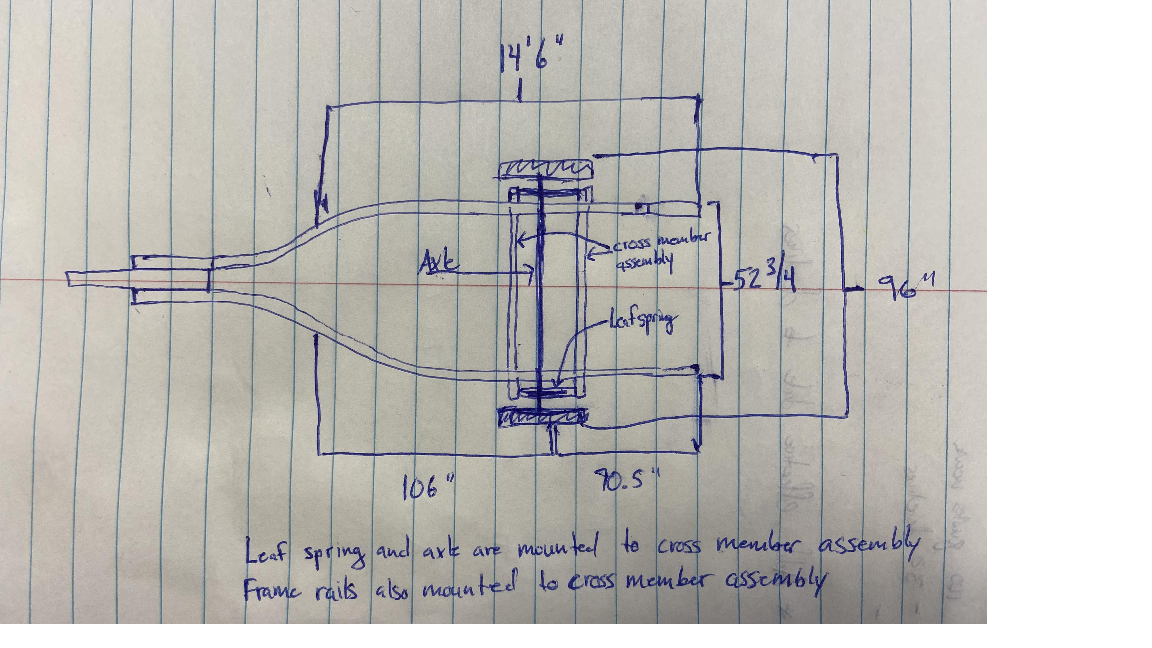 14'6"
cross member
assembly
Axle
52 3/4
96"
Leaf spring
106"
70.5"
Leaf spring and axle are mounted to cross member assembly
Frame rails also mounted to cross member assembly